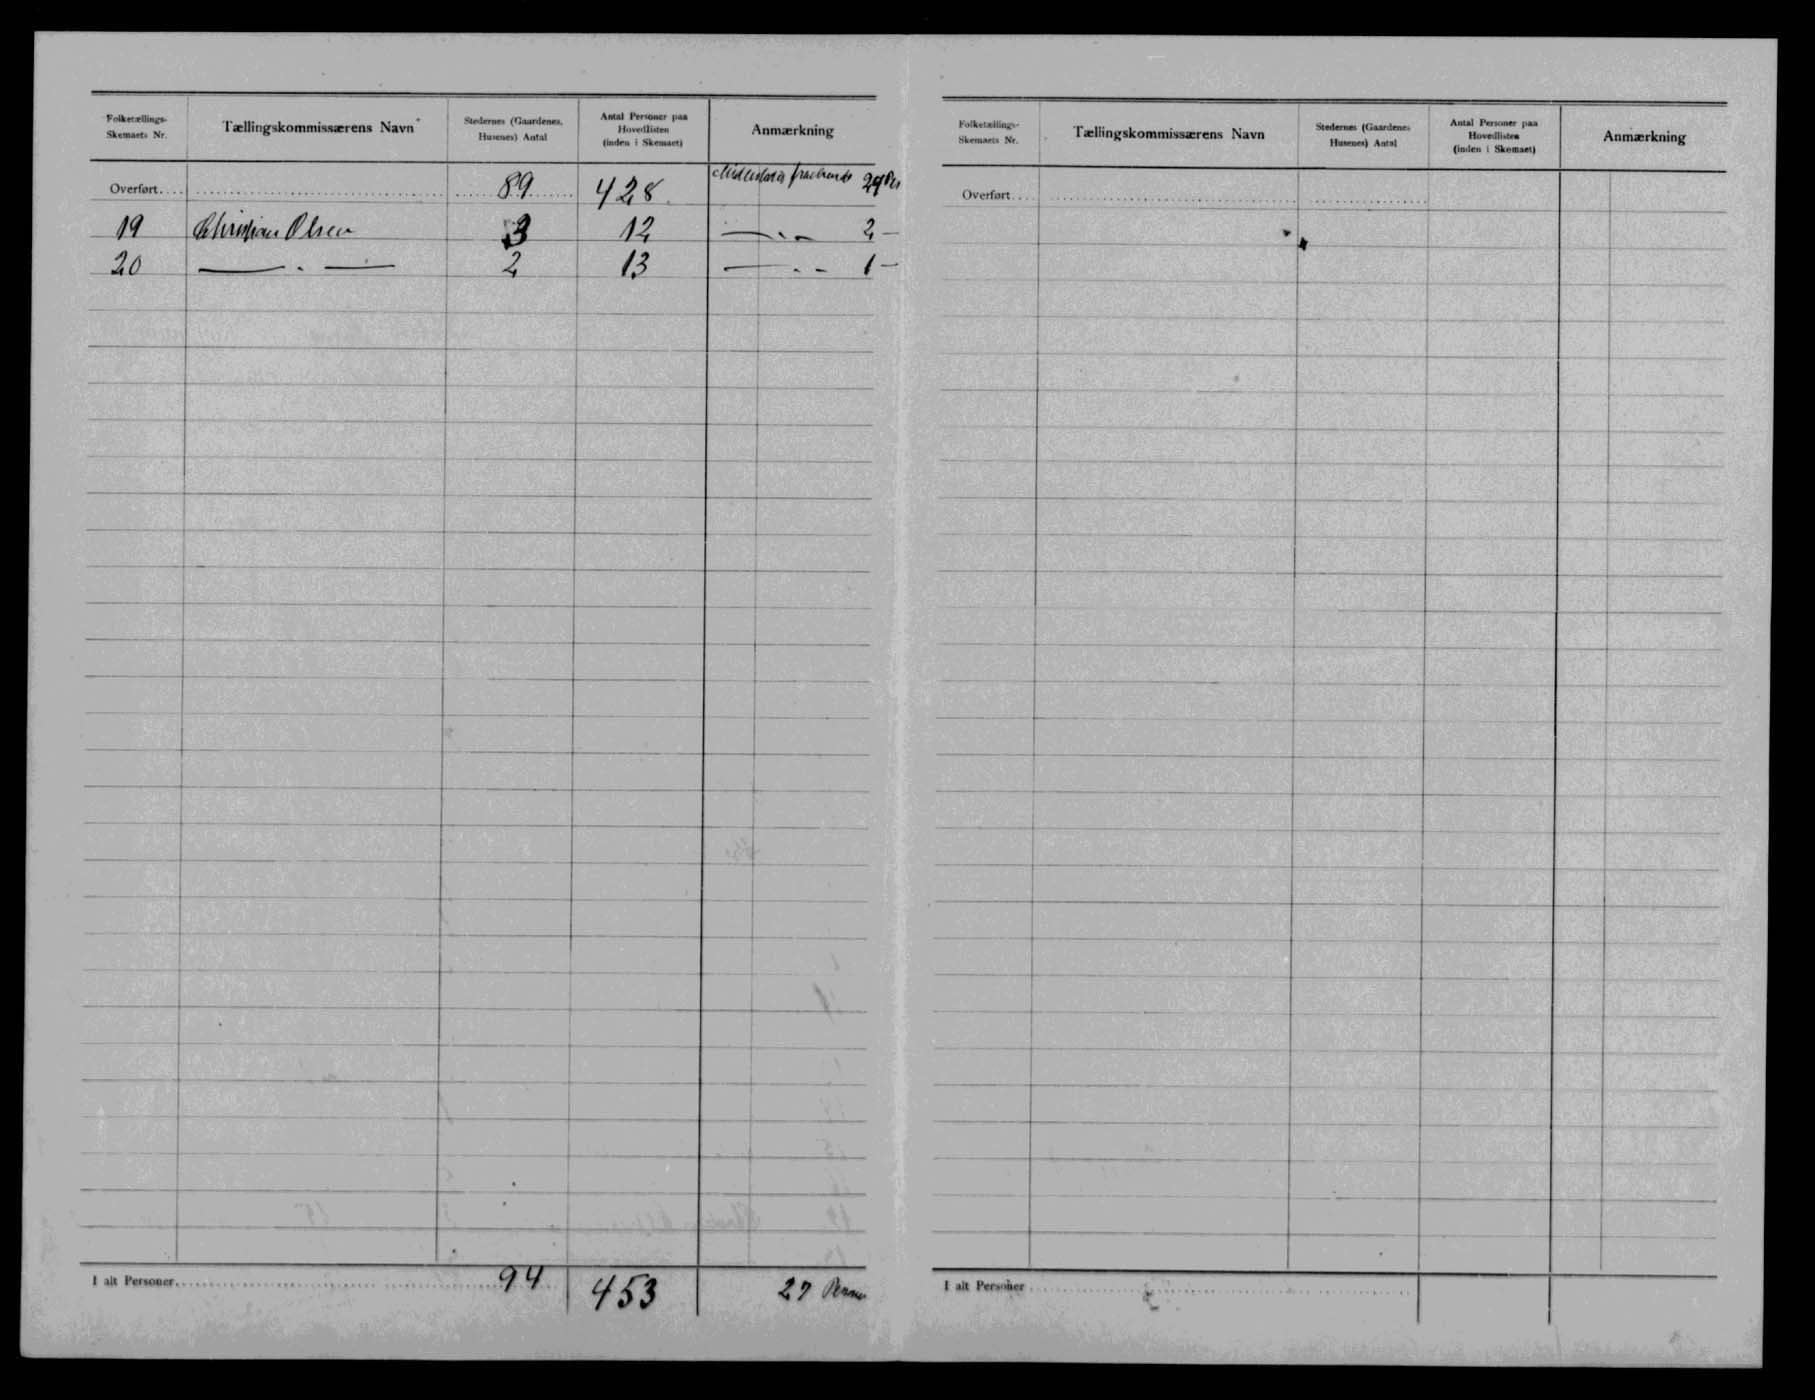 Folketællings-Skemaets Nr. Tællingskommissærens Navn Stedernes (Gaardenes, Husenes) Antal Antal Personer paa Hovedlisten (inden i Skemaet) Anmærkning
Overført.... 89 428 Midlertidig fraværende 24 Per
19 Christian Olsen 3 12 — „ — 2 —
20 — „ — 2 13 — „ — 1 —
I alt Personer 94 453 27 Person
Folketællings-Skemaets Nr. Tællingskommissærens Navn Stedernes (Gaardenes Husenes) Antal Antal Personer paa Hovedlisten (inden i Skemaet) Anmærkning
Overført....
I alt Personer